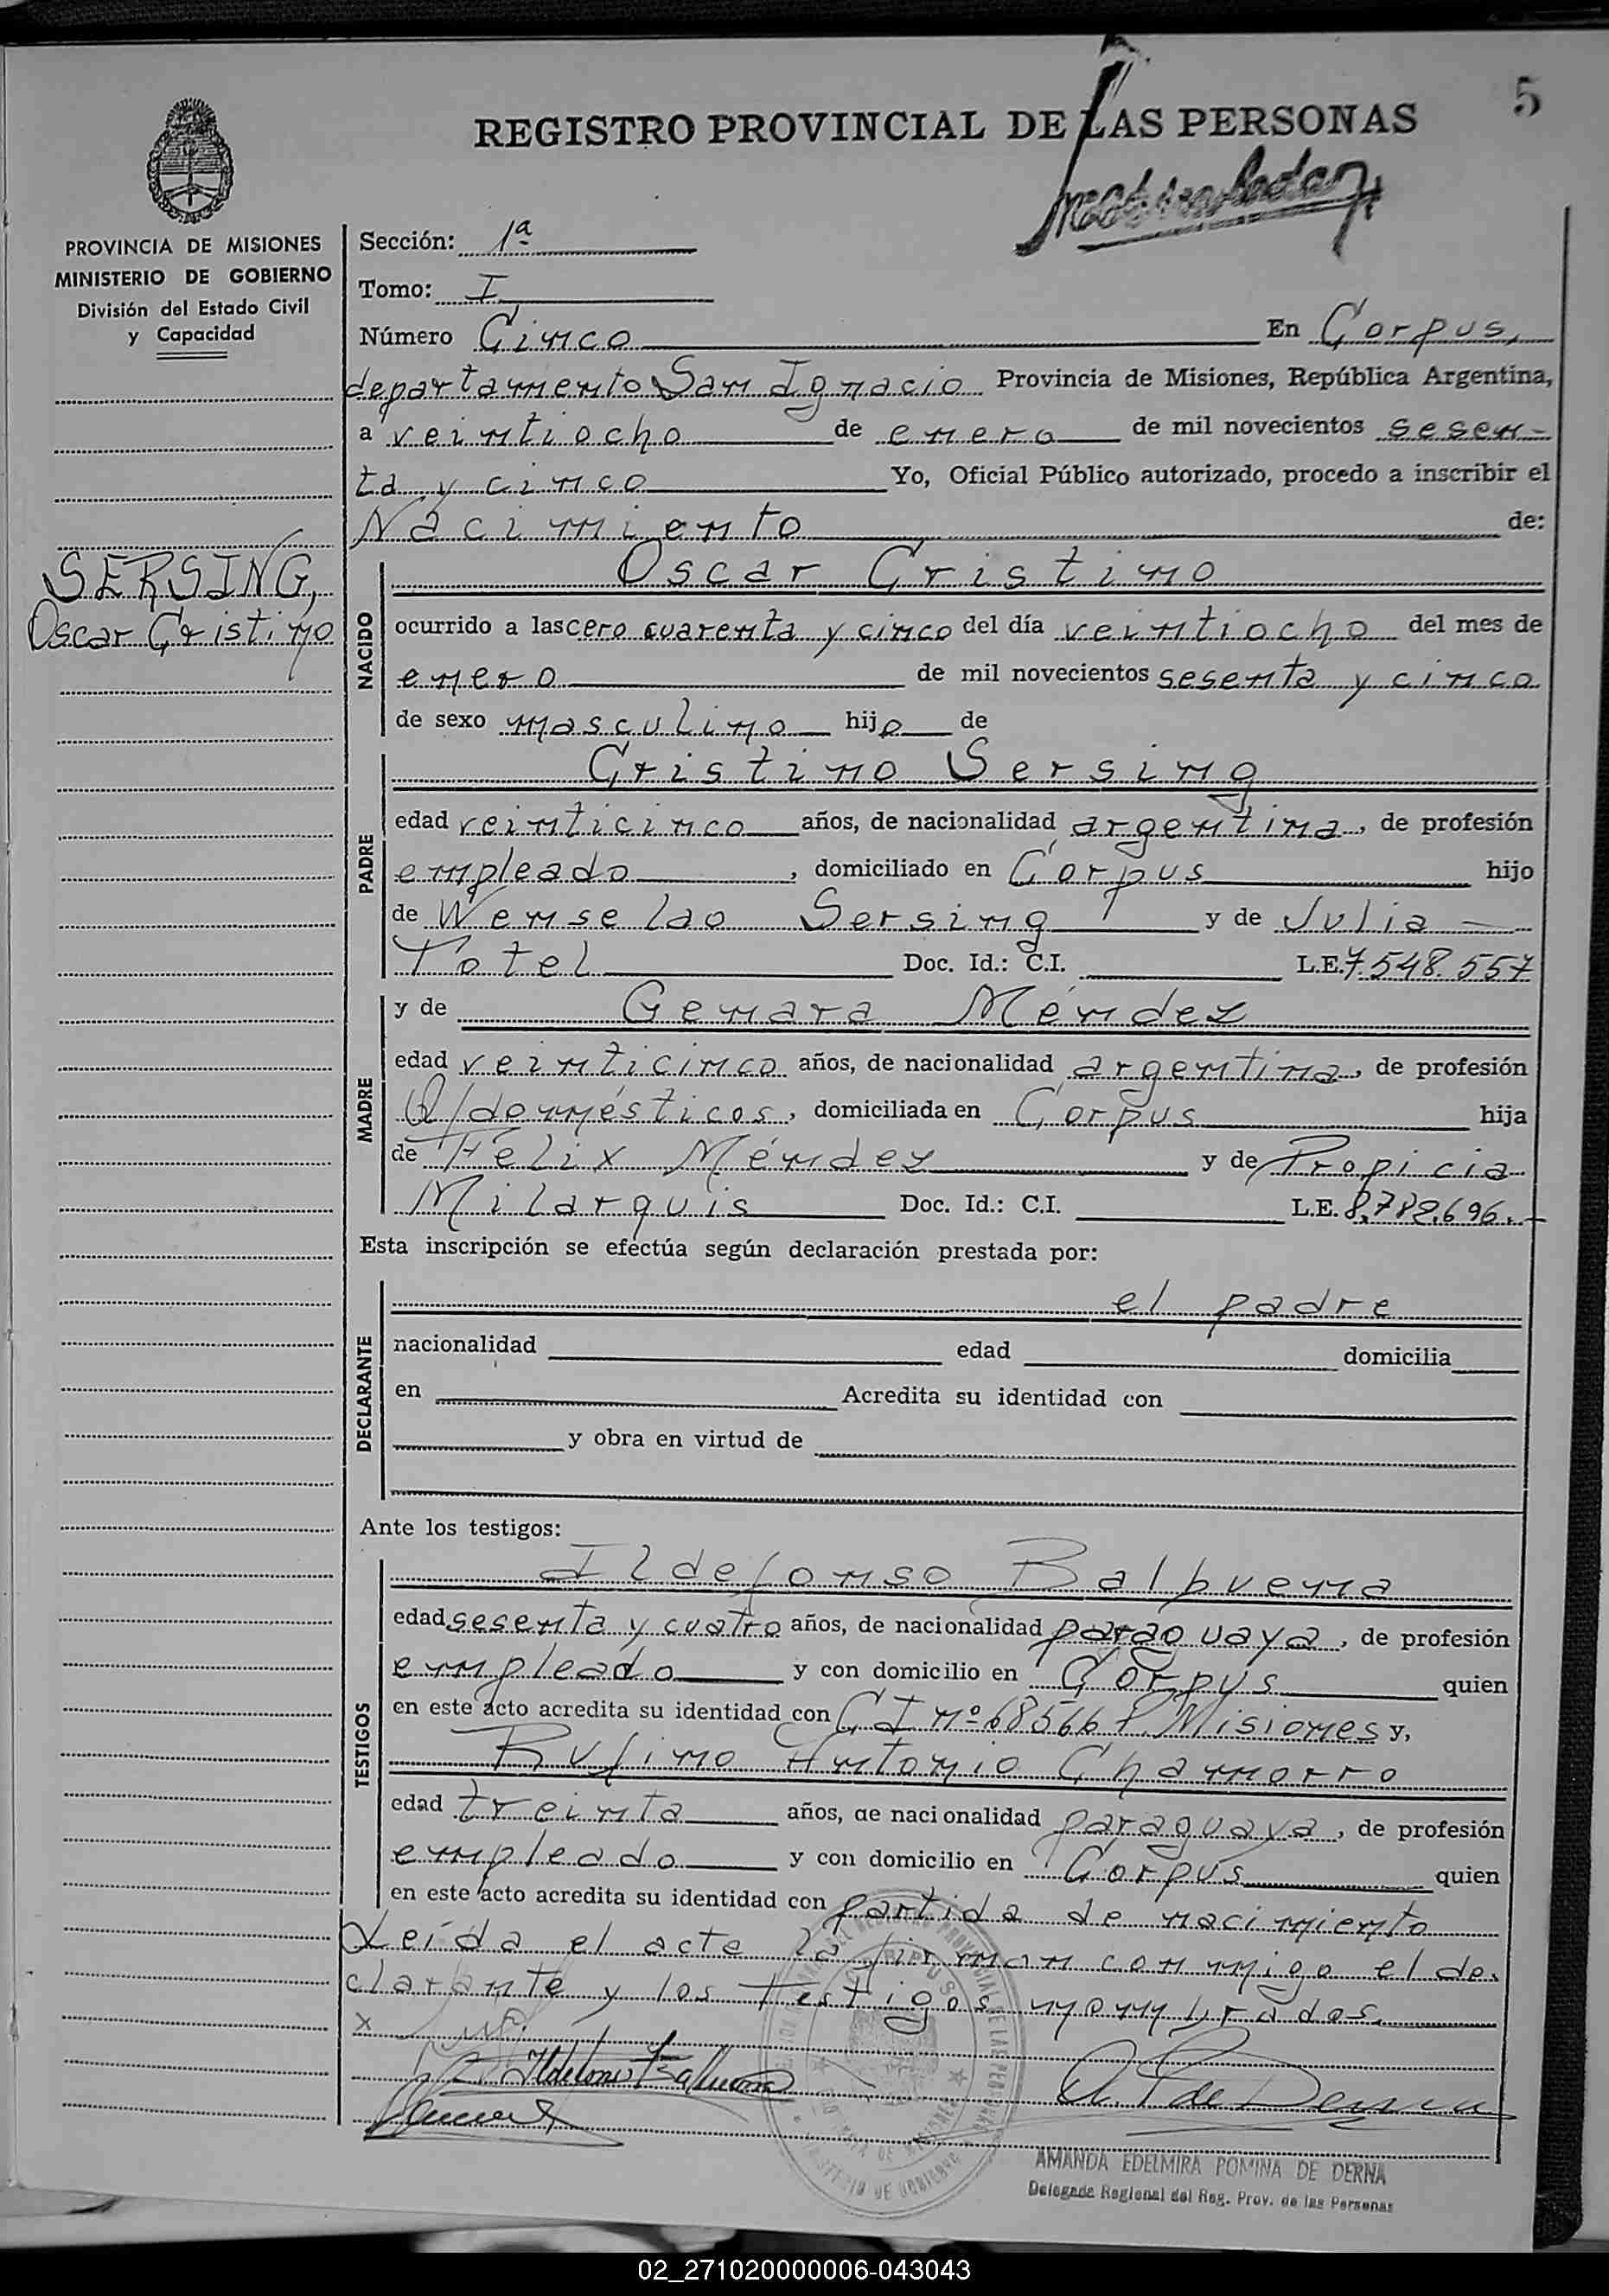 5
REGISTRO PROVINCIAL DE LAS PERSONAS
PROVINCIA DE MISIONES
MINISTERIO DE GOBIERNO
División del Estado Civil
y Capacidad
SERSING,
Oscar Cristino
Sección: 1ª
Tomo: I
Número Cinco En Corpus,
departamento San Ignacio Provincia de Misiones, República Argentina,
a veintiocho de enero de mil novecientos sesen-
ta y cinco Yo, Oficial Público autorizado, procedo a inscribir el
Nacimiento de:
NACIDO
Oscar Cristino
ocurrido a las cero cuarenta y cinco del día veintiocho del mes de
enero de mil novecientos sesenta y cinco
de sexo masculino hijo de
PADRE
Cristino Sersing
edad veinticinco años, de nacionalidad argentina, de profesión
empleado, domiciliado en Corpus hijo
de Wenselao Sersing y de Julia
Totel Doc. Id.: C.I. L.E. 7.548.557
MADRE
y de Genara Méndez
edad veinticinco años, de nacionalidad argentina, de profesión
Q/domésticos, domiciliada en Corpus hija
de Félix Méndez y de Propicia
Milarquis Doc. Id.: C.I. L.E. 8.782.696.-
Esta inscripción se efectúa según declaración prestada por:
DECLARANTE
el padre
nacionalidad edad domicilia
en Acredita su identidad con
y obra en virtud de
Ante los testigos:
TESTIGOS
Ildefonso Balbuena
edad sesenta y cuatro años, de nacionalidad paraguaya, de profesión
empleado y con domicilio en Corpus quien
en este acto acredita su identidad con CI nº 68566 P. Misiones y,
Rufino Antonio Chamorro
edad treinta años, de nacionalidad paraguaya, de profesión
empleado y con domicilio en Corpus quien
en este acto acredita su identidad con partida de nacimiento
Leída el acta la firman conmigo el de.
clarante y los testigos nombrados.
x
Ildefonso Balbuena
AMANDA EDELMIRA POMINA DE DERNA
Delegada Regional del Reg. Prov. de las Personas
02_271020000006-043043